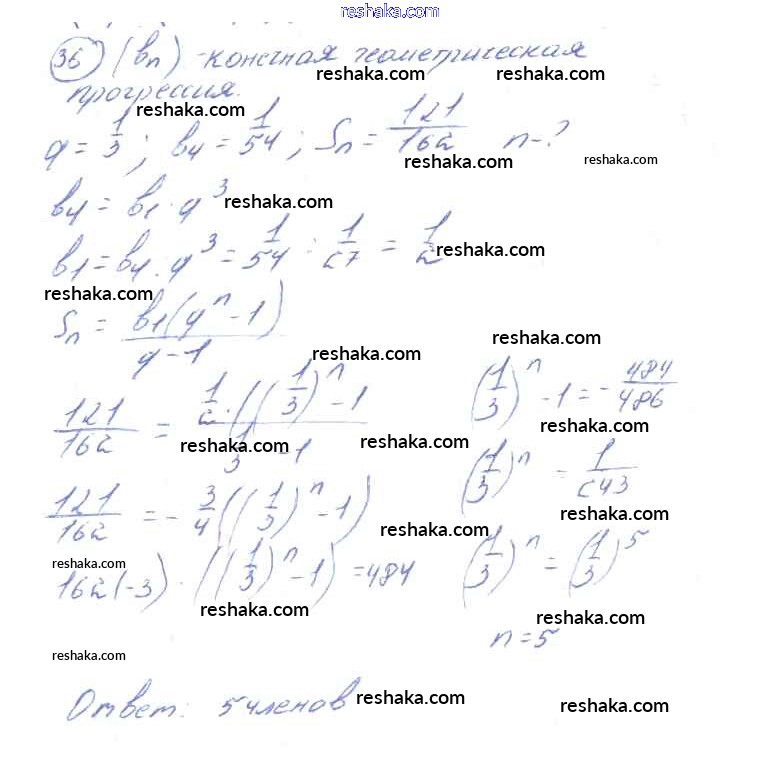 reshaka.com
36 (bn) - конечная геометрическая
reshaka.com reshaka.com
прогрессия.
reshaka.com
q = 1/3 ; b4 = 1/54 ; Sn = 121/162 n-?
reshaka.com reshaka.com
b4 = b1 · q^3
reshaka.com
b1 = b4 : q^3 = 1/54 : 1/27 = 1/2
reshaka.com
reshaka.com
Sn = b1(q^n - 1)/(q - 1)
reshaka.com
reshaka.com
121/162 = 1/2 · ((1/3)^n - 1)/(1/3 - 1)
reshaka.com reshaka.com
121/162 = - 3/4 ((1/3)^n - 1)
reshaka.com
reshaka.com
162 (-3) · ((1/3)^n - 1) = 484
reshaka.com
(1/3)^n - 1 = - 484/486
reshaka.com
(1/3)^n = 1/243
reshaka.com
(1/3)^n = (1/3)^5
reshaka.com
n = 5
reshaka.com
Ответ: 5 членов
reshaka.com reshaka.com